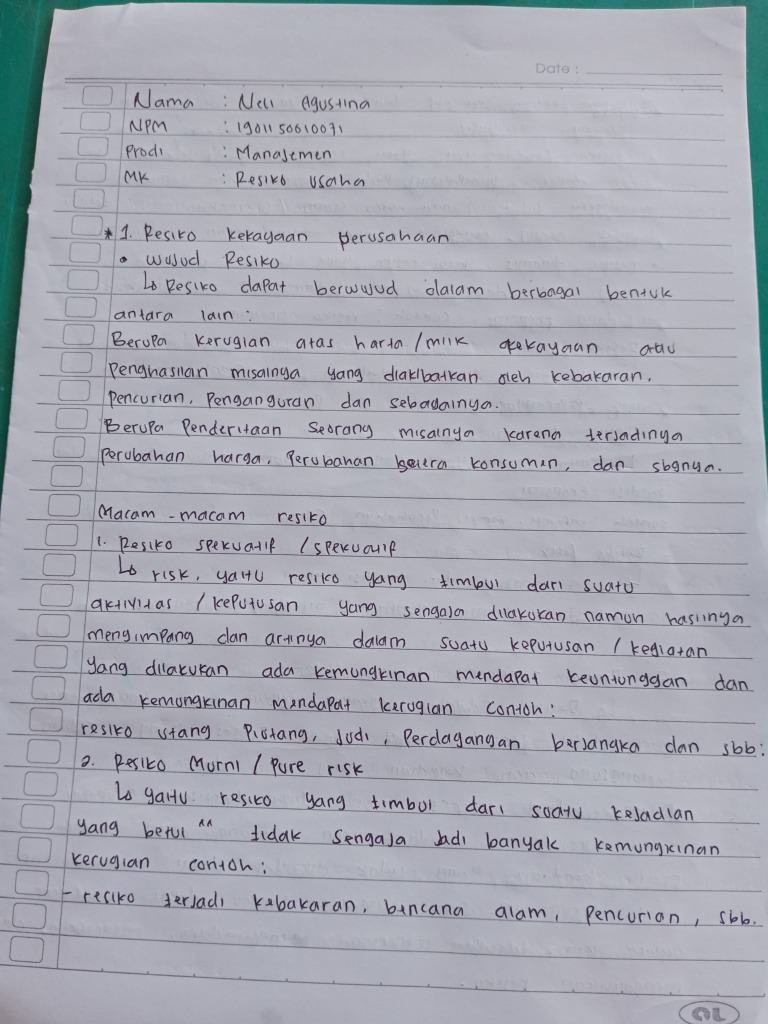 Date :
Nama : Neli Agustina
NPM : 1901150610071
Prodi : Manajemen
MK : Resiko usaha
* 1. Resiko kekayaan perusahaan
• wujud Resiko
↳ Resiko dapat berwujud dalam berbagai bentuk
antara lain :
Berupa kerugian atas harta / milik kekayaan atau
Penghasilan misalnya yang diakibatkan oleh kebakaran,
Pencurian, Penganguran dan sebagainya.
Berupa Penderitaan Seorang misalnya karena terjadinya
Perubahan harga, Perubahan selera konsumen, dan sbgnya.
Macam - macam resiko
1. Resiko spekuatif / spekuatif
↳ risk, yaitu resiko yang timbul dari suatu
aktivitas / keputusan yang sengaja dilakukan namun hasilnya
mengimpang dan artinya dalam suatu keputusan / kegiatan
Yang dilakukan ada kemungkinan mendapat keuntunggan dan
ada kemungkinan mendapat kerugian contoh :
resiko utang Piutang, Judi, Perdagangan berjangka dan sbb :
2. Resiko Murni / Pure risk
↳ yaitu resiko yang timbul dari suatu kejadian
yang betul ^^ tidak sengaja Jadi banyak kemungkinan
kerugian contoh :
- resiko terjadi kebakaran, bencana alam, Pencurian, sbb.